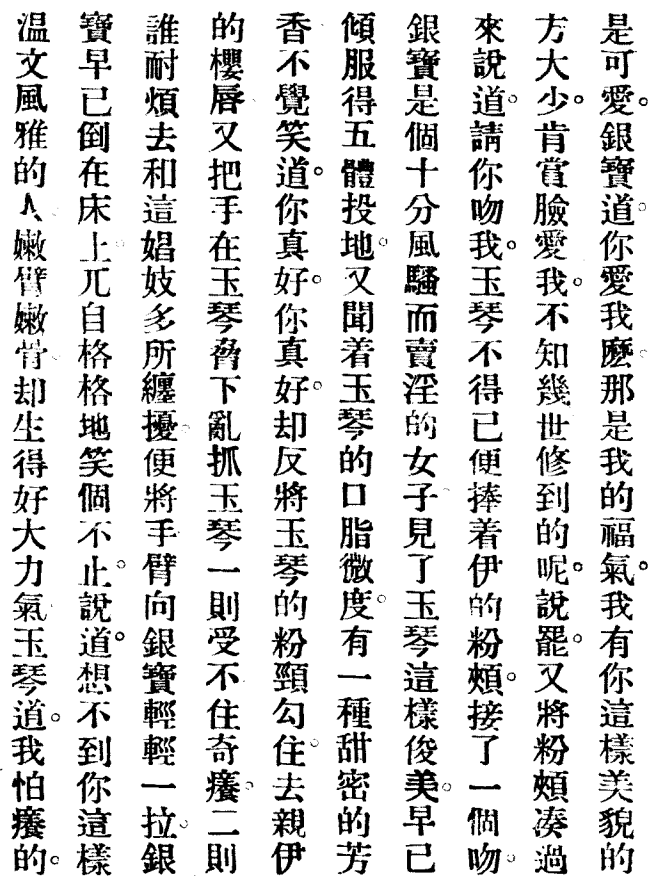 是可愛。銀寶道。你愛我麽。那是我的福氣。我有你這樣美貌的
方大少。肯賞臉愛我。不知幾世修到的呢。說罷。又將粉頰凑過
來說道。請你吻我。玉琴不得已便捧着伊的粉頰。接了一個吻。
銀寶是個十分風騷而賣淫的女子見了玉琴這樣俊美。早已
傾服得五體投地。又聞着玉琴的口脂微度。有一種甜密的芳
香不覺笑道。你真好。你真好。却反將玉琴的粉頸勾住。去親伊
的櫻唇又把手在玉琴脅下亂抓玉琴一則受不住奇癢。二則
誰耐煩去和這娼妓多所纏擾。便將手臂向銀寶輕輕一拉。銀
寶早已倒在床上。兀自格格地笑個不止。說道。想不到你這樣
温文風雅的人嫩臂嫩骨。却生得好大力氣玉琴道。我怕癢的。